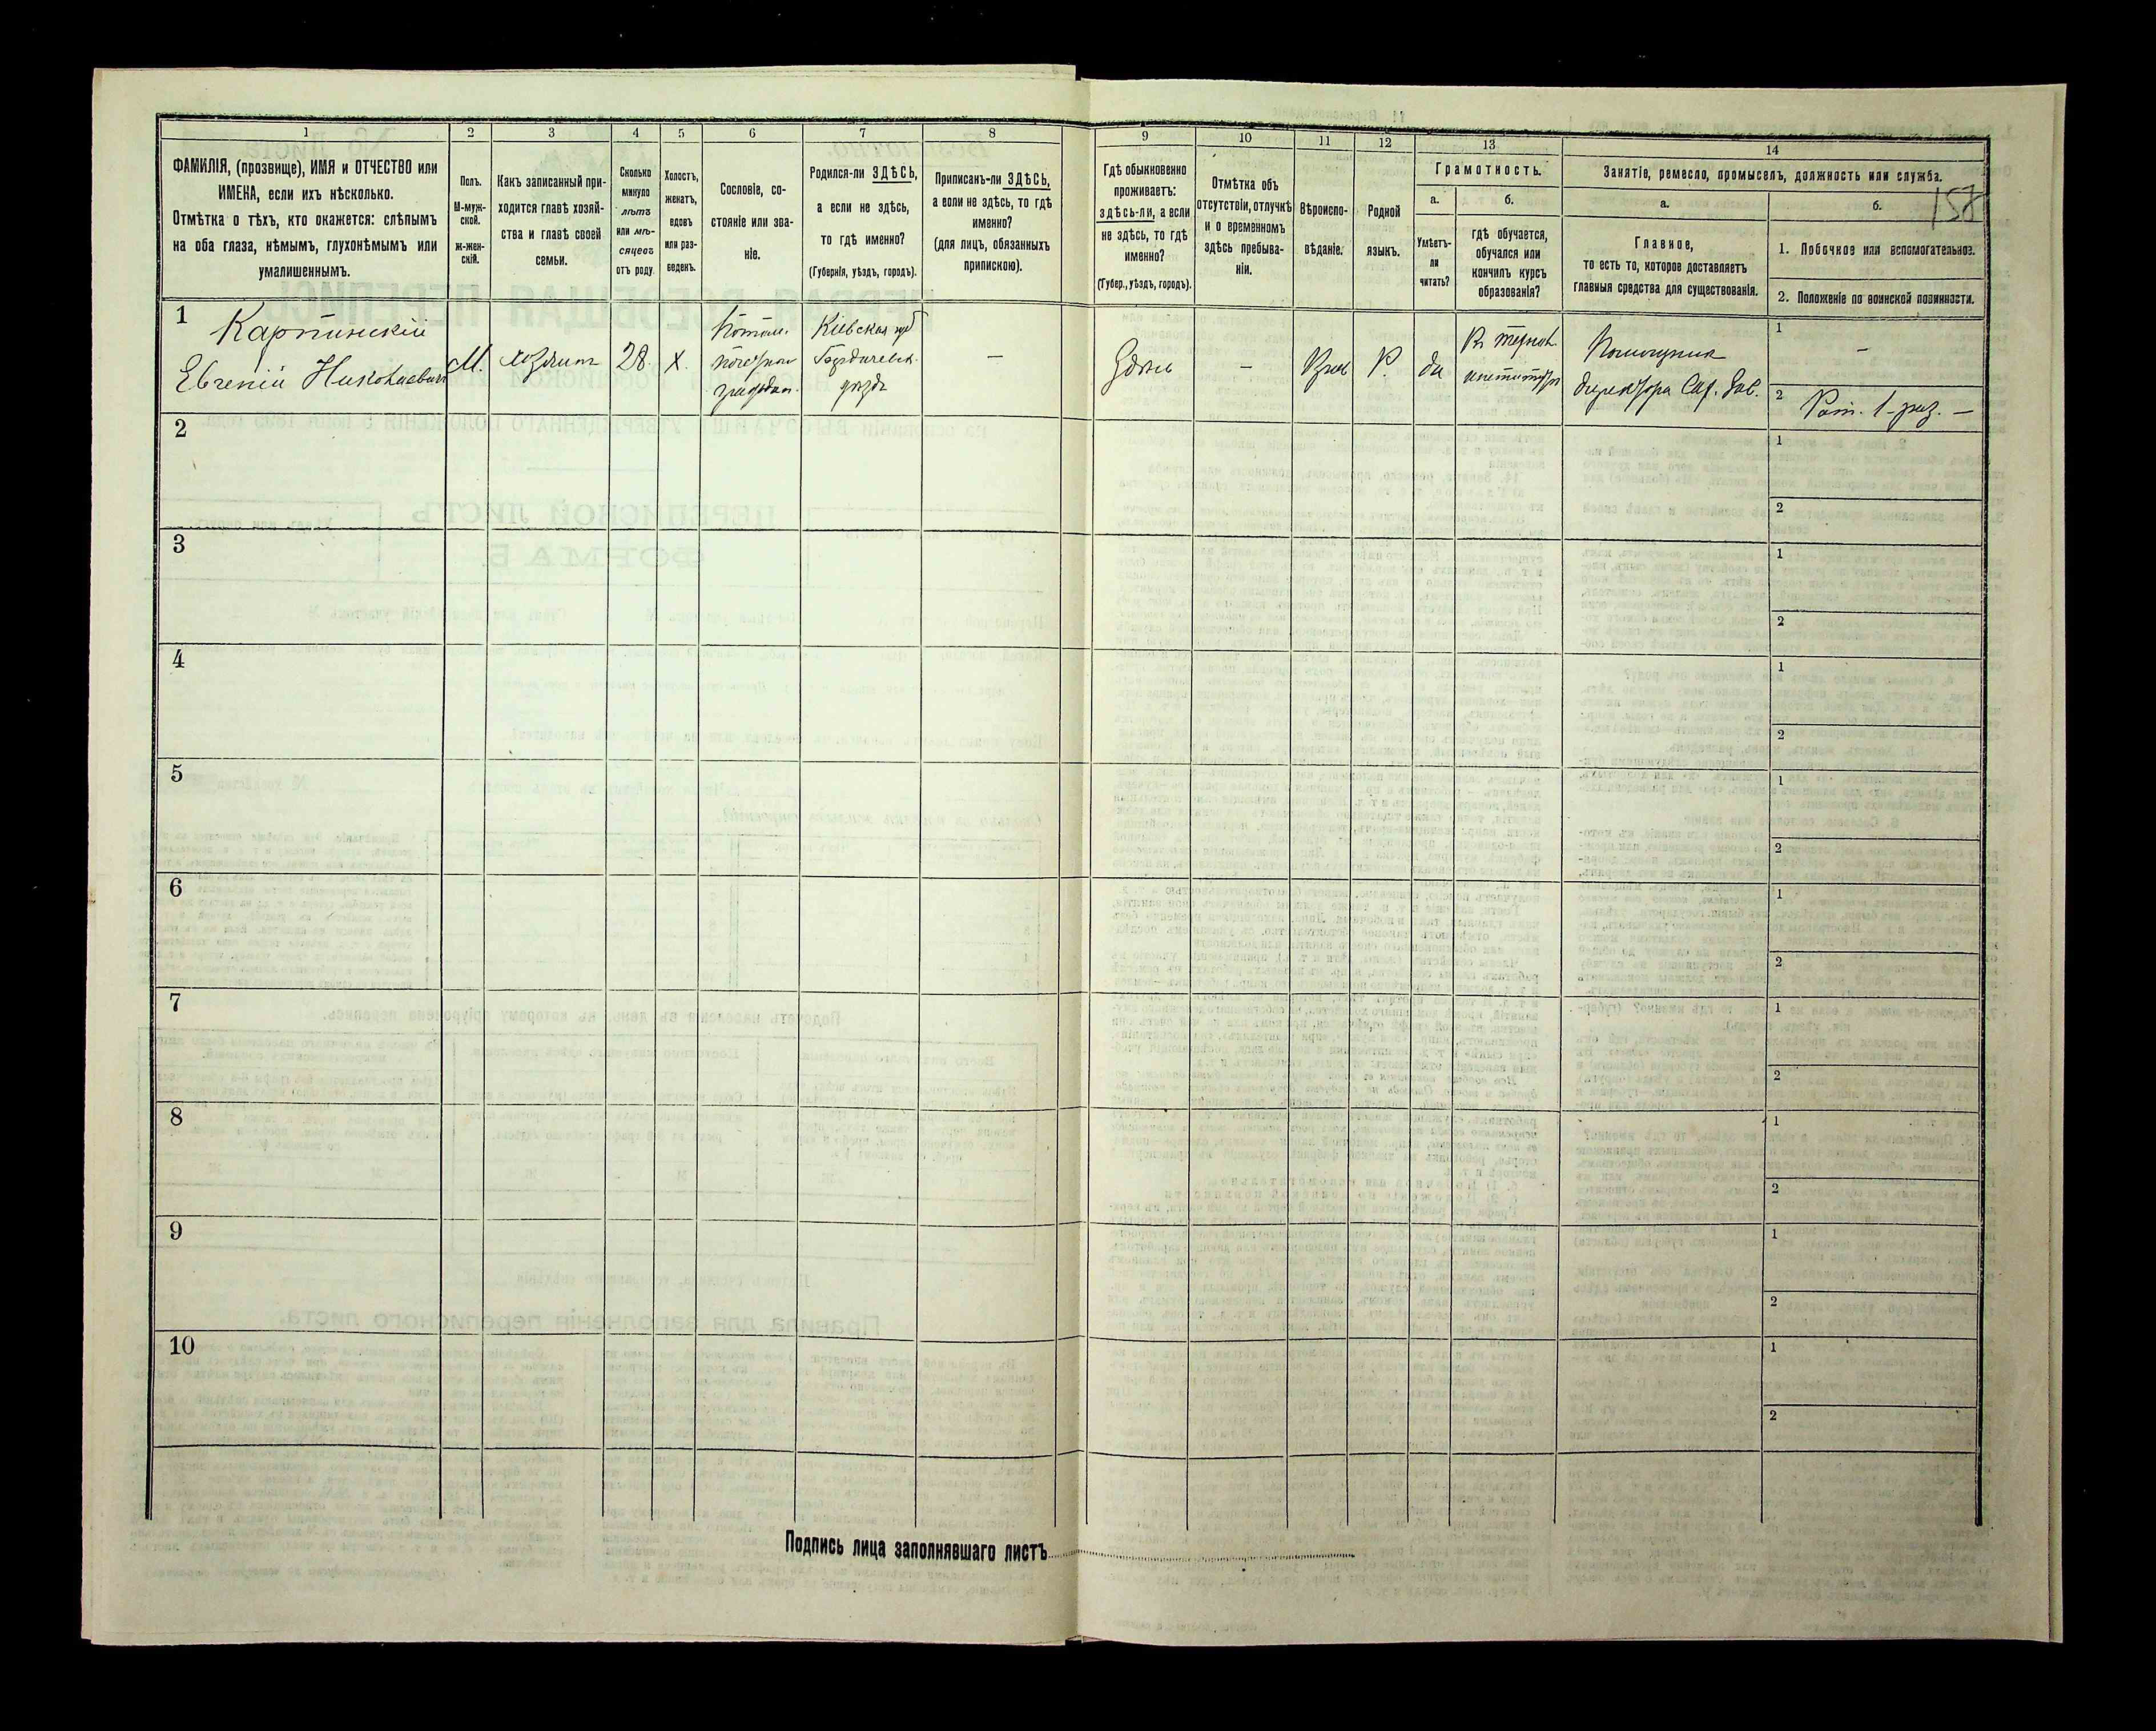 1
2
3
4
5
6
7
8
ФАМИЛІЯ, (прозвище), ИМЯ и ОТЧЕСТВО или
ИМЕНА, если ихъ нѣсколько.
Отмѣтка о тѣхъ, кто окажется: слѣпымъ
на оба глаза, нѣмымъ, глухонѣмымъ или
умалишеннымъ.
Полъ.
М-муж-
ской.
ж-жен-
скій.
Какъ записанный при-
ходится главѣ хозяй-
ства и главѣ своей
семьи.
Сколько
минуло
лѣтъ
или мѣ-
сяцевъ
отъ роду.
Холостъ,
женатъ,
вдовъ
или раз-
веденъ.
Сословіе, со-
стояніе или зва-
ніе.
Родился-ли ЗДѢСЬ,
а если не здѣсь,
то гдѣ именно?
(Губернія, уѣздъ, городъ).
Приписанъ-ли ЗДѢСЬ,
а если не здѣсь, то гдѣ
именно?
(для лицъ, обязанныхъ
припискою).
9
10
11
12
13
14
Гдѣ обыкновенно
проживаетъ:
здѣсь-ли, а если
не здѣсь, то гдѣ
именно?
(Губер., уѣздъ, городъ).
Отмѣтка объ
отсутствіи, отлучкѣ
и о временномъ
здѣсь пребыва-
ніи.
Вѣроиспо-
вѣданіе.
Родной
языкъ.
Грамотность.
а.
Умѣетъ-
ли
читать?
б.
гдѣ обучается,
обучался или
кончилъ курсъ
образованія?
Занятіе, ремесло, промыселъ, должность или служба.
а.
Главное,
то есть то, которое доставляетъ
главныя средства для существованія.
б.
158
1. Побочное или вспомогательное.
2. Положеніе по воинской повинности.
1
Карпинскій
Евгеній Николаевич
М.
хозяинъ
28
Х.
Потом.
почетн.
граждан.
Кіевская губ
Бердичевск.
уѣздъ
—
Здѣсь
—
Р.
да
Помощникъ
директора Сах. Зав.
1
—
2
Рат. 1-раз. —
2
1
2
3
1
2
4
1
2
5
1
2
6
1
2
7
1
2
8
1
2
9
1
2
10
1
2
Подпись лица заполнявшаго листъ